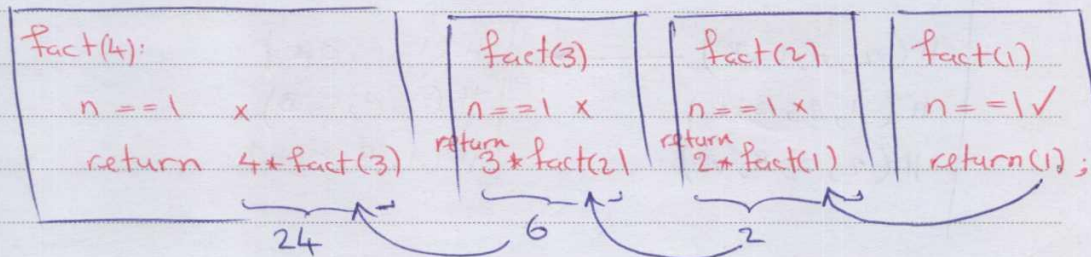 fact(4):
n == 1 x
return 4*fact(3)
24
fact(3)
n == 1 x
return
3*fact(2)
6
fact(2)
n == 1 x
return
2*fact(1)
2
fact(1)
n == 1 ✓
return(1);